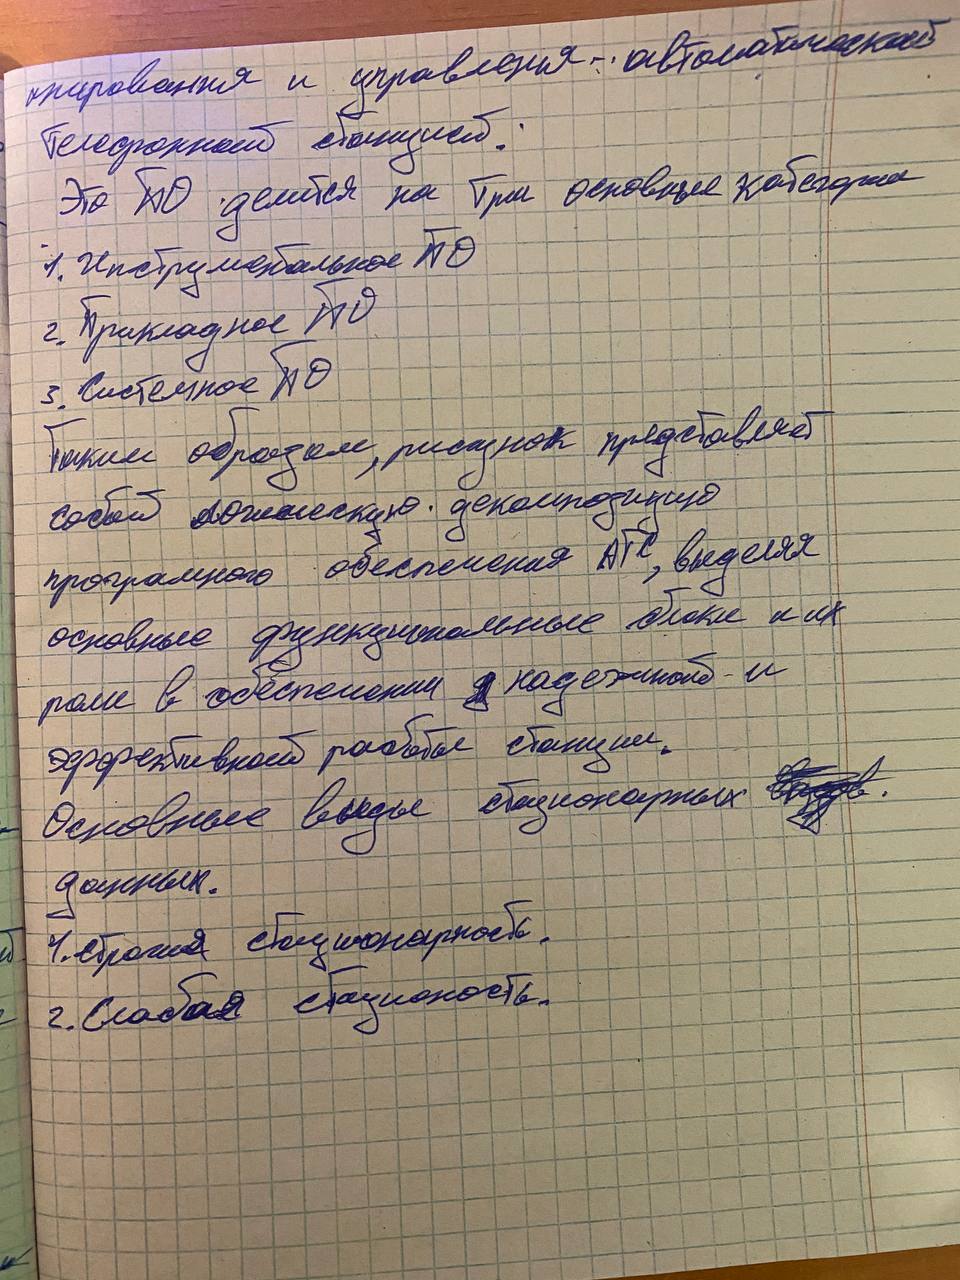 нирования и управления автоматической
телефонной станцией.
Это ПО делится на три основные категории
1. Инструментальное ПО
2. Прикладное ПО
3. Системное ПО
Таким образом, рисунок представляет
собой логическую декомпозицию
програмного обеспечения АТС, выделяя
основные функциональные блоки и их
роли в обеспечении надежной и
эффективной работы станции.
Основные виды стационарных
данных.
1. Строгая стационарность.
2. Слабая стационость.